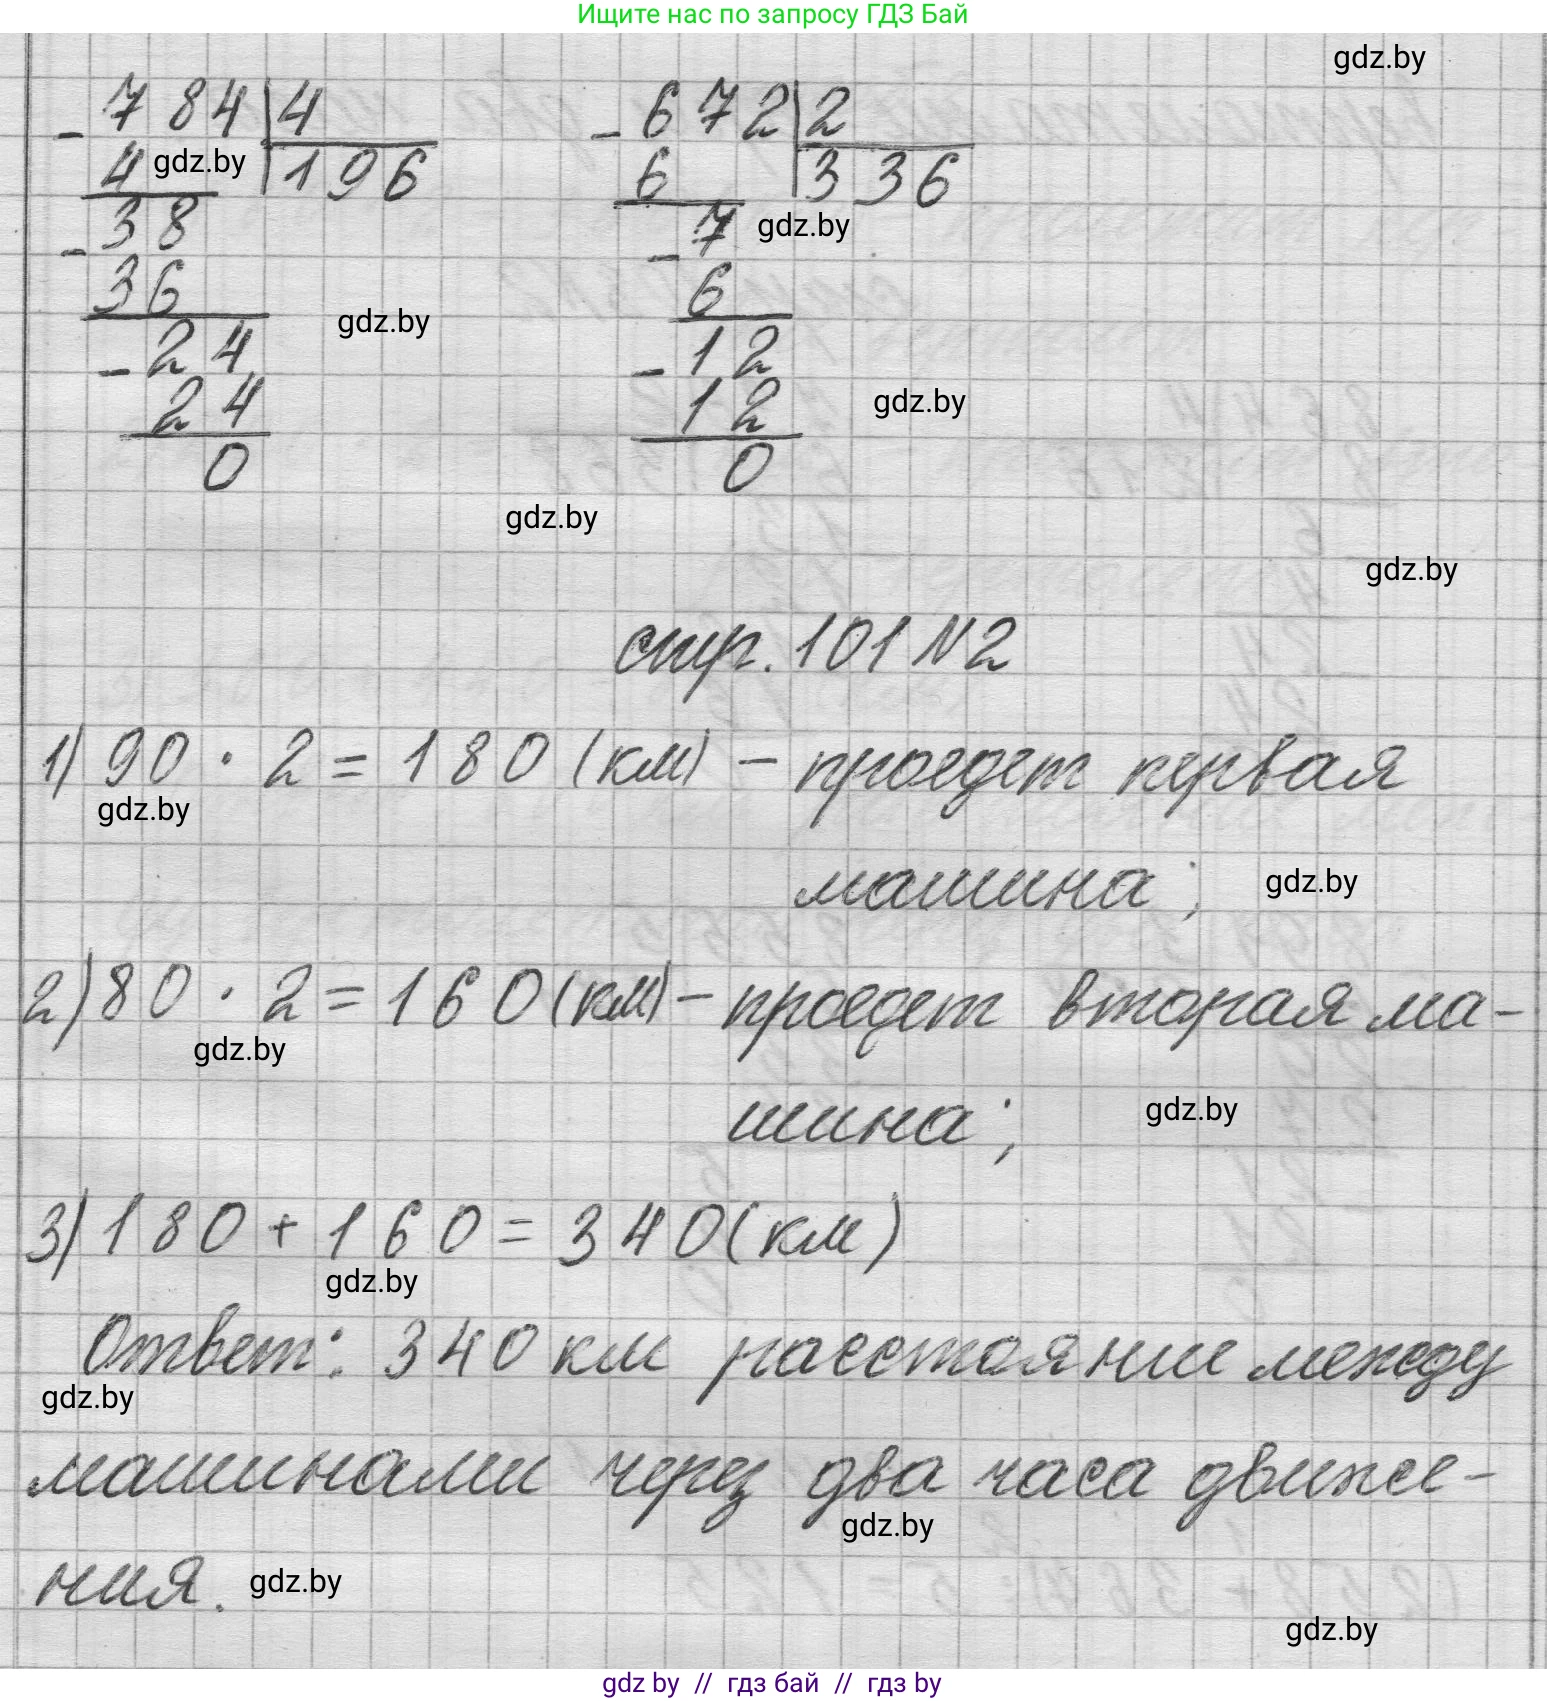 Ищите нас по запросу ГДЗ Бай
gdz.by
- 784 | 4
4 gdz.by 196
- 38
36
gdz.by
- 24
24
0
- 672 | 2
6 336
- 7 gdz.by
6
- 12
12 gdz.by
0
gdz.by
gdz.by
стр. 101 N2
1) 90 · 2 = 180 (км) - проедет первая
gdz.by
машина; gdz.by
2) 80 · 2 = 160 (км) - проедет вторая ма-
gdz.by
шина; gdz.by
3) 180 + 160 = 340 (км)
gdz.by
Ответ: 340 км расстояние между
gdz.by
машинами через два часа движе-
gdz.by
ния. gdz.by
gdz.by
gdz by // гдз бай // гдз by